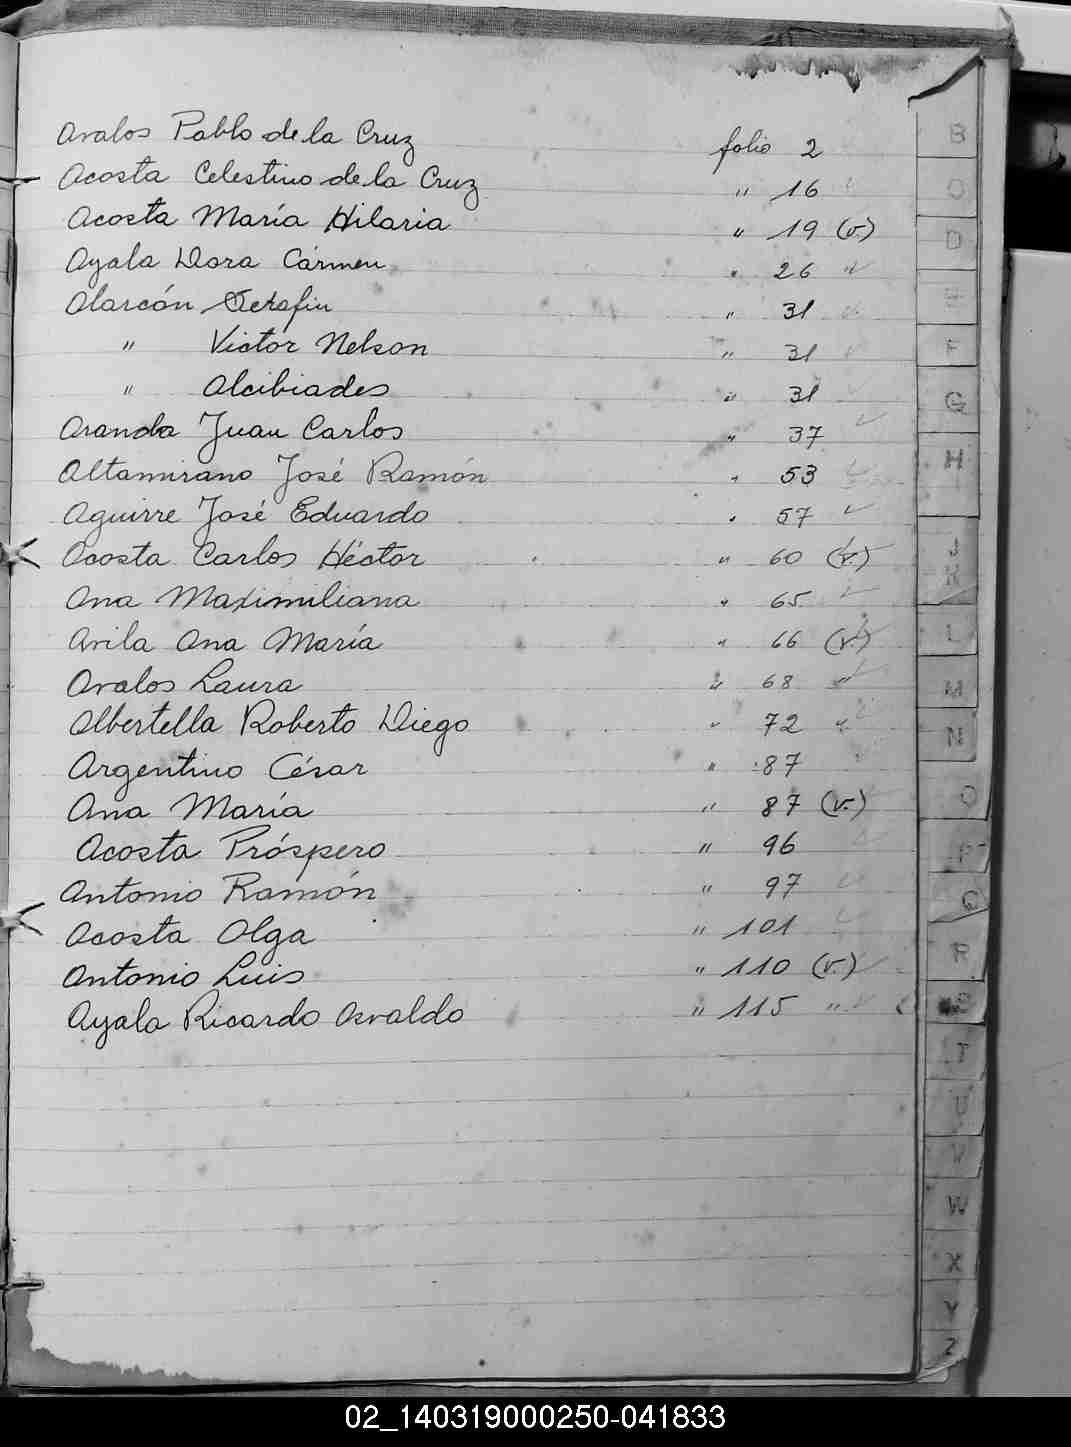 Avalos Pablo de la Cruz folio 2
Acosta Celestino de la Cruz " 16
Acosta María Hilaria " 19 (v.)
Ayala Dora Cármen " 26 "
Alarcón Serafin " 31
" Victor Nelson " 31
" Alcibiades " 31
Aranda Juan Carlos " 37
Altamirano José Ramón " 53
Aguirre José Eduardo " 57
Acosta Carlos Héctor " 60 (v.)
Ana Maximiliana " 65
Avila Ana María " 66 (v.)
Avalos Laura " 68 "
Albertella Roberto Diego " 72 "
Argentino César " 87
Ana María " 87 (v.)
Acosta Próspero " 96
Antonio Ramón " 97
Acosta Olga " 101
Antonio Luis " 110 (v.)
Ayala Ricardo Osvaldo " 115 "
B
D
F
G
H
J
K
L
M
N
O
P
Q
R
S
T
U
V
W
X
Y
Z
02_140319000250-041833